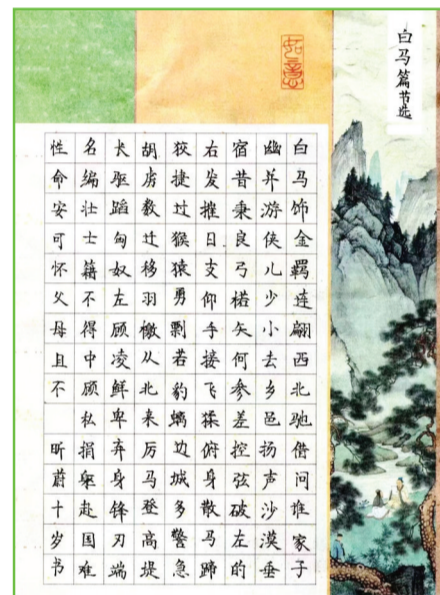 白马篇节选
如意
白马饰金羁连翩西北驰借问谁家子
幽并游侠儿少小去乡邑扬声沙漠垂
宿昔秉良弓楛矢何参差控弦破左的
右发摧日支仰手接飞猱俯身散马蹄
狡捷过猴猿勇剽若豹螭边城多警急
胡虏数迁移羽檄从北来厉马登高堤
长驱蹈匈奴左顾凌鲜卑弃身锋刃端
名编壮士籍不得中顾私捐躯赴国难
性命安可怀父母且不 昕蔚十岁书